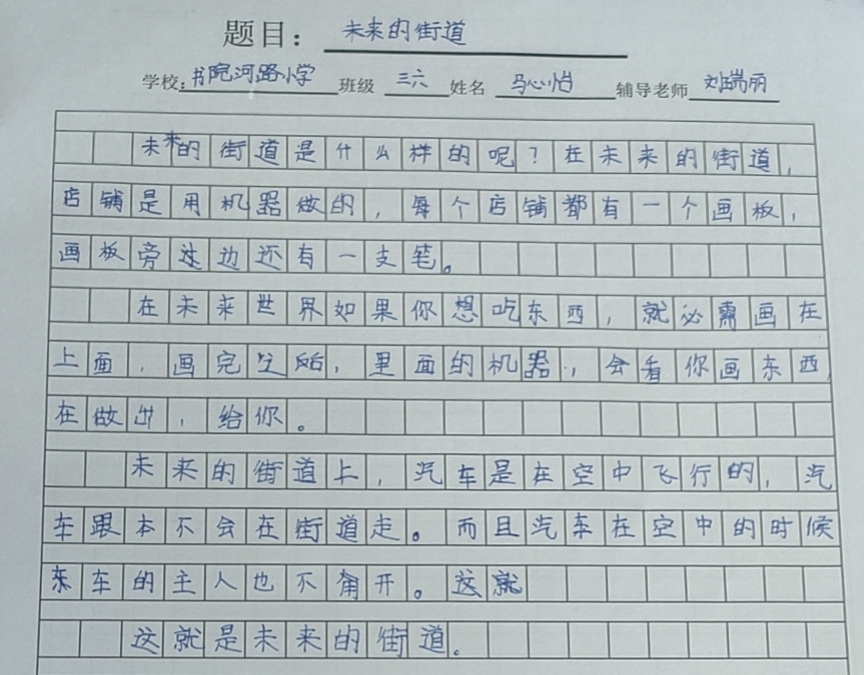 题目： 未来的街道
学校：书院河路小学 班级 三六 姓名 马心怡 辅导老师 刘瑞丽
未来的街道是什么样的呢？在未来的街道，
店铺是用机器做的，每个店铺都有一个画板，
画板旁这边还有一支笔。
在未来世界如果你想吃东西，就必需画在
上面，画完之后，里面的机器，会看你画东西，
在做出，给你。
未来的街道上，汽车是在空中飞行的，汽
车跟本不会在街道走。而且汽车在空中的时候
车的主人也不用开。这就
这就是未来的街道。